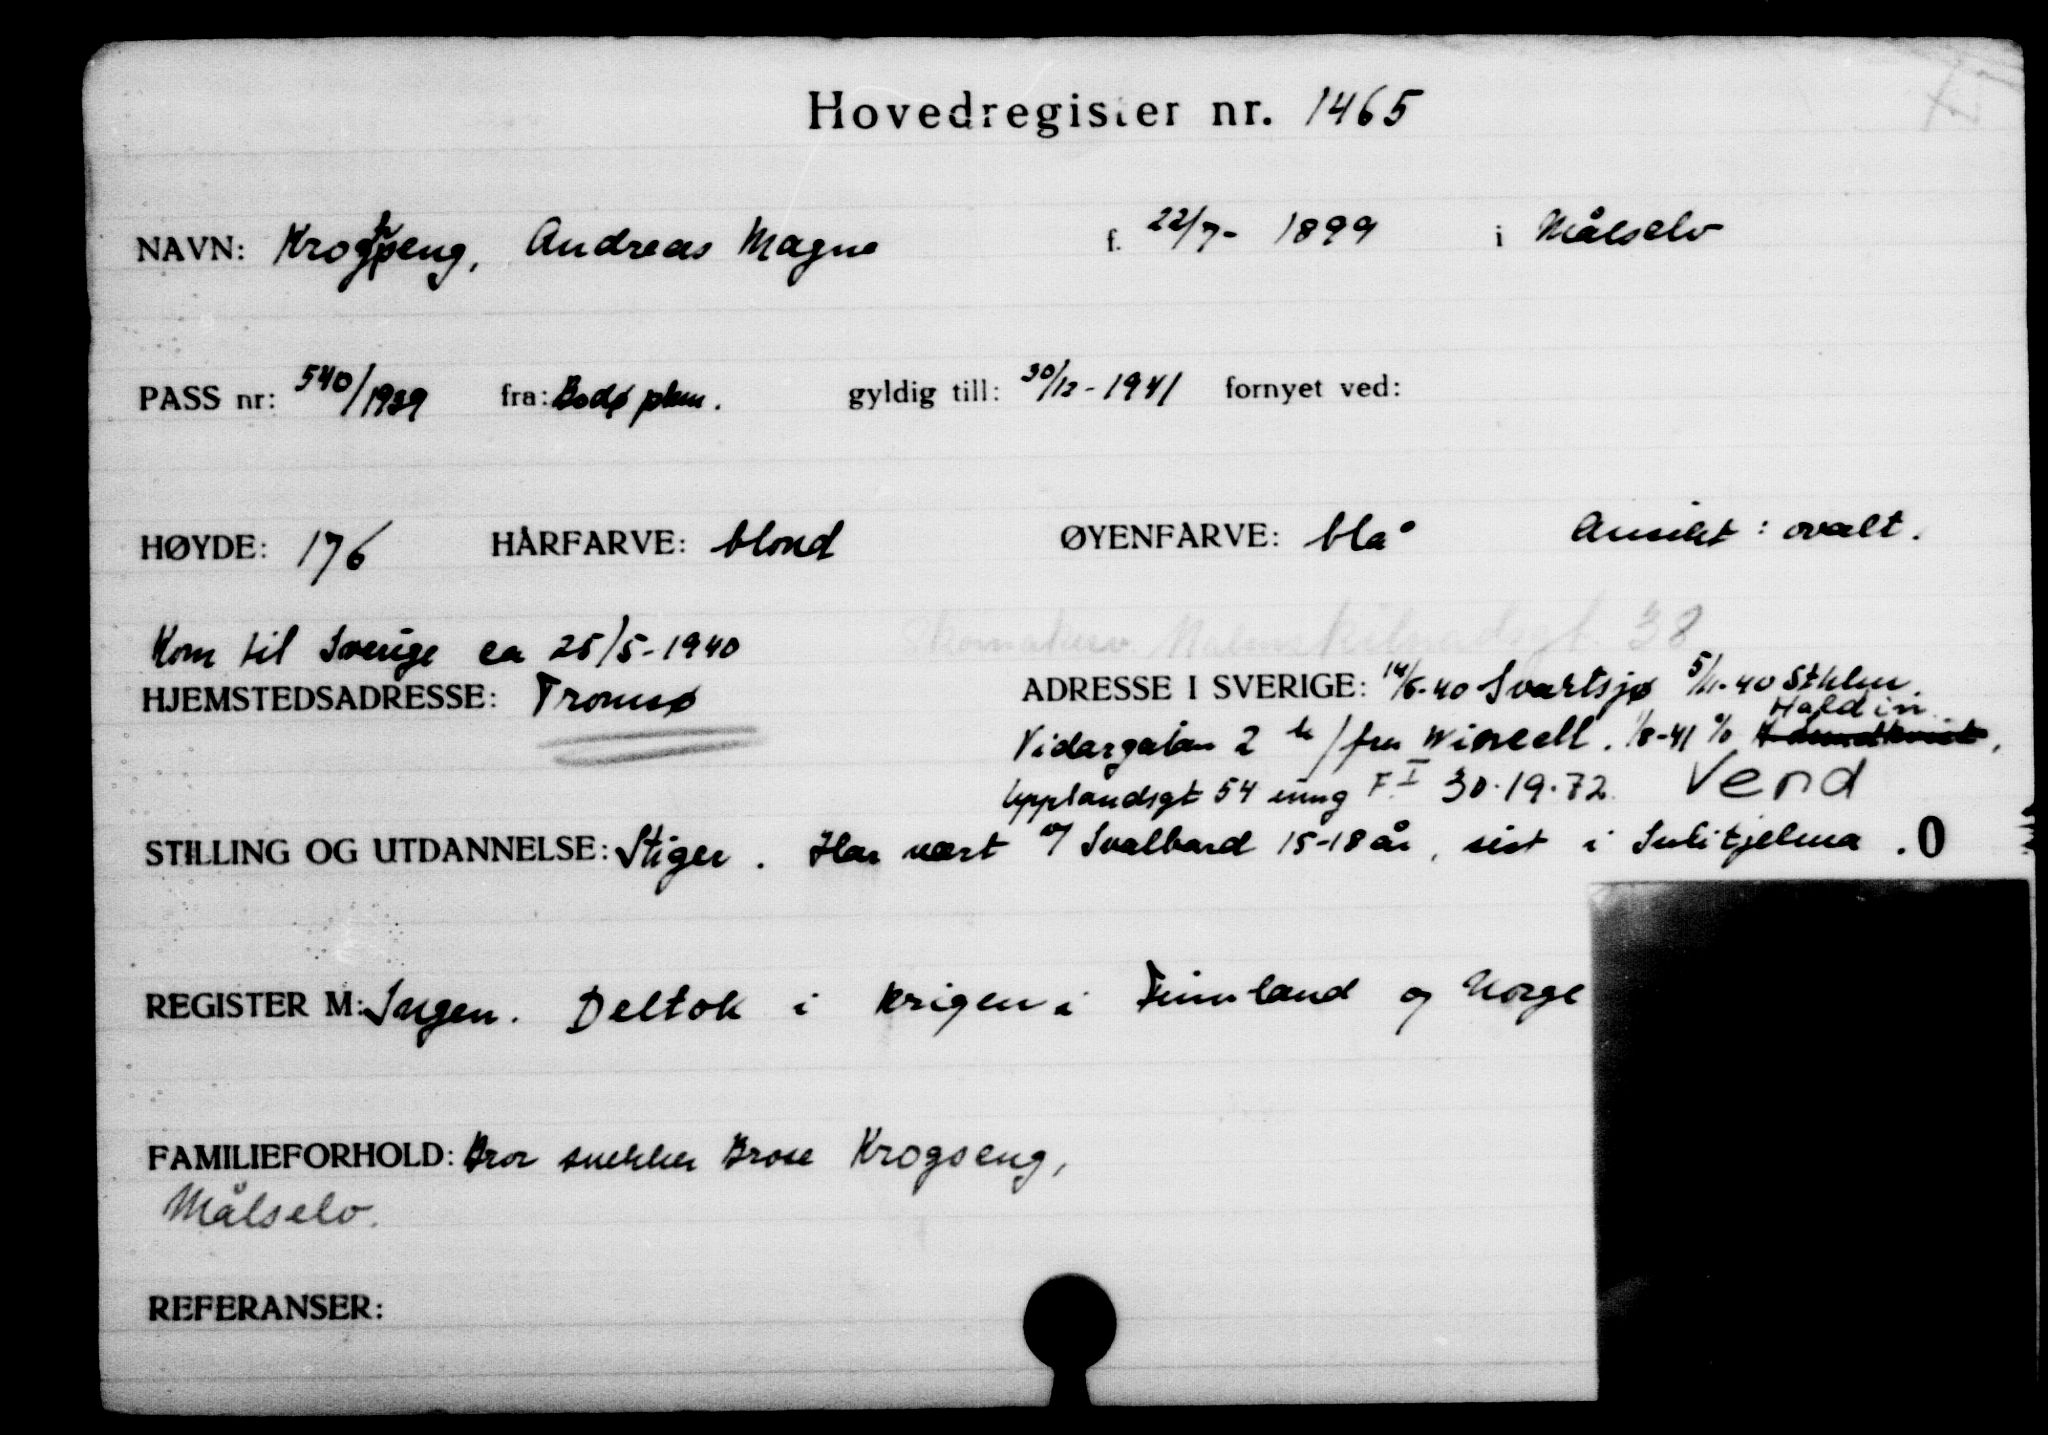 Hovedregister nr. 1465
NAVN: Krogseng, Andreas Magne f. 22/7- 1899 i Målselv
PASS nr: 540/1939 fra: Bodø pkm. gyldig till: 30/12-1941 fornyet ved:
HØYDE: 176 HÅRFARVE: blond ØYENFARVE: blå Ansikt: ovalt.
38
Kom til Sverige ca 25/5-1940
HJEMSTEDSADRESSE: Tromsø
ADRESSE I SVERIGE: 14/6-40 Svartsjø 5/11-40 Sthlm.
Haldin
Vidargatan 2 fru Wincell. 1/8-41 %
Upplandsgt 54 inng F. I 30.19.72. Vend
STILLING OG UTDANNELSE: Stiger. Har vært på Svalbard 15-18 år, sist i Sulitjelma. O
REGISTER M: Ingen. Deltok i krigen i Finnland og Norge
FAMILIEFORHOLD: Bror snekker Krogseng,
Målselv.
REFERANSER: